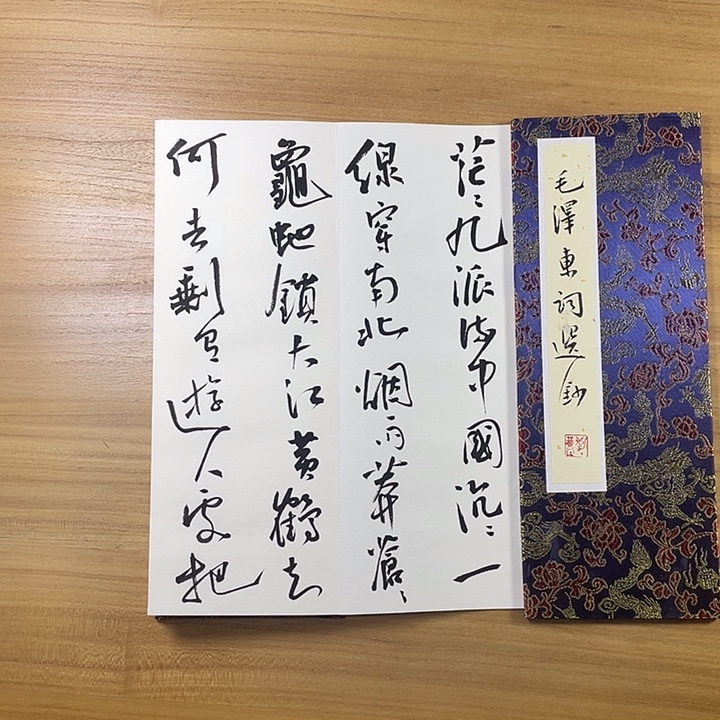 毛澤東詞選鈔
茫〻九派流中國沉〻一
線穿南北烟雨莽蒼〻
龜蛇鎖大江黃鶴知
何去剩有遊人處把